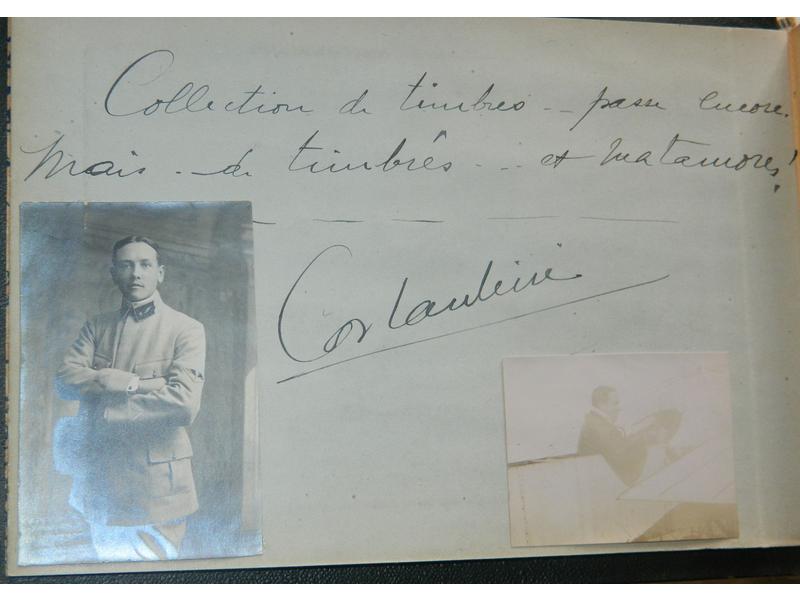 Collection de timbres -- passe encore.
Mais -- de timbrés -- et matamores!